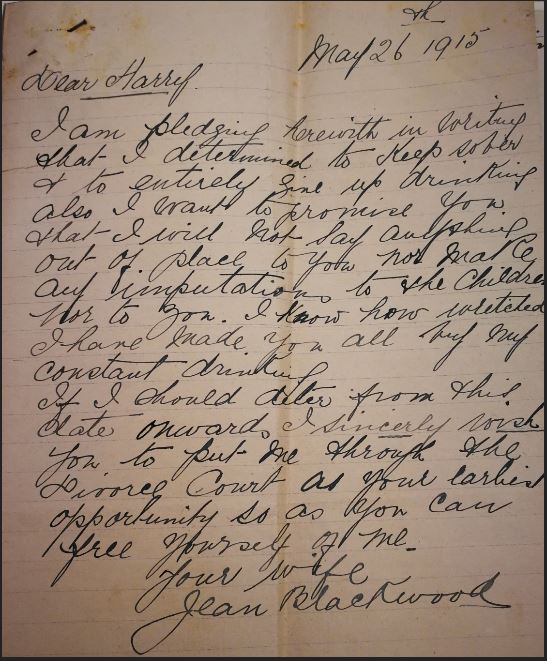 May 26th 1915
Dear Harry.
I am pledging herewith in writing
that I determined to keep sober
& to entirely give up drinking
also I want to promise you
that I will not say anything
out of place to you nor make
any imputations to the children
nor to you. I know how wretched
I have made you all by my
constant drinking
If I should deter from this
date onwards I sincerly wish
you to put me through the
Divorce Court as your earliest
opportunity so as you can
free yourself of me.
Your wife
Jean Blackwood